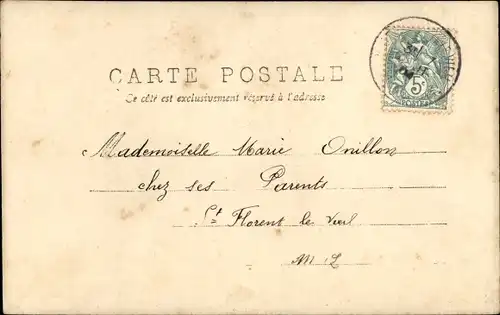 CARTE POSTALE
Ce côté est exclusivement réservé à l'adresse
5c
POSTES
Mademoiselle Marie Onillon
chez ses Parents
St Florent le Vieil
M L